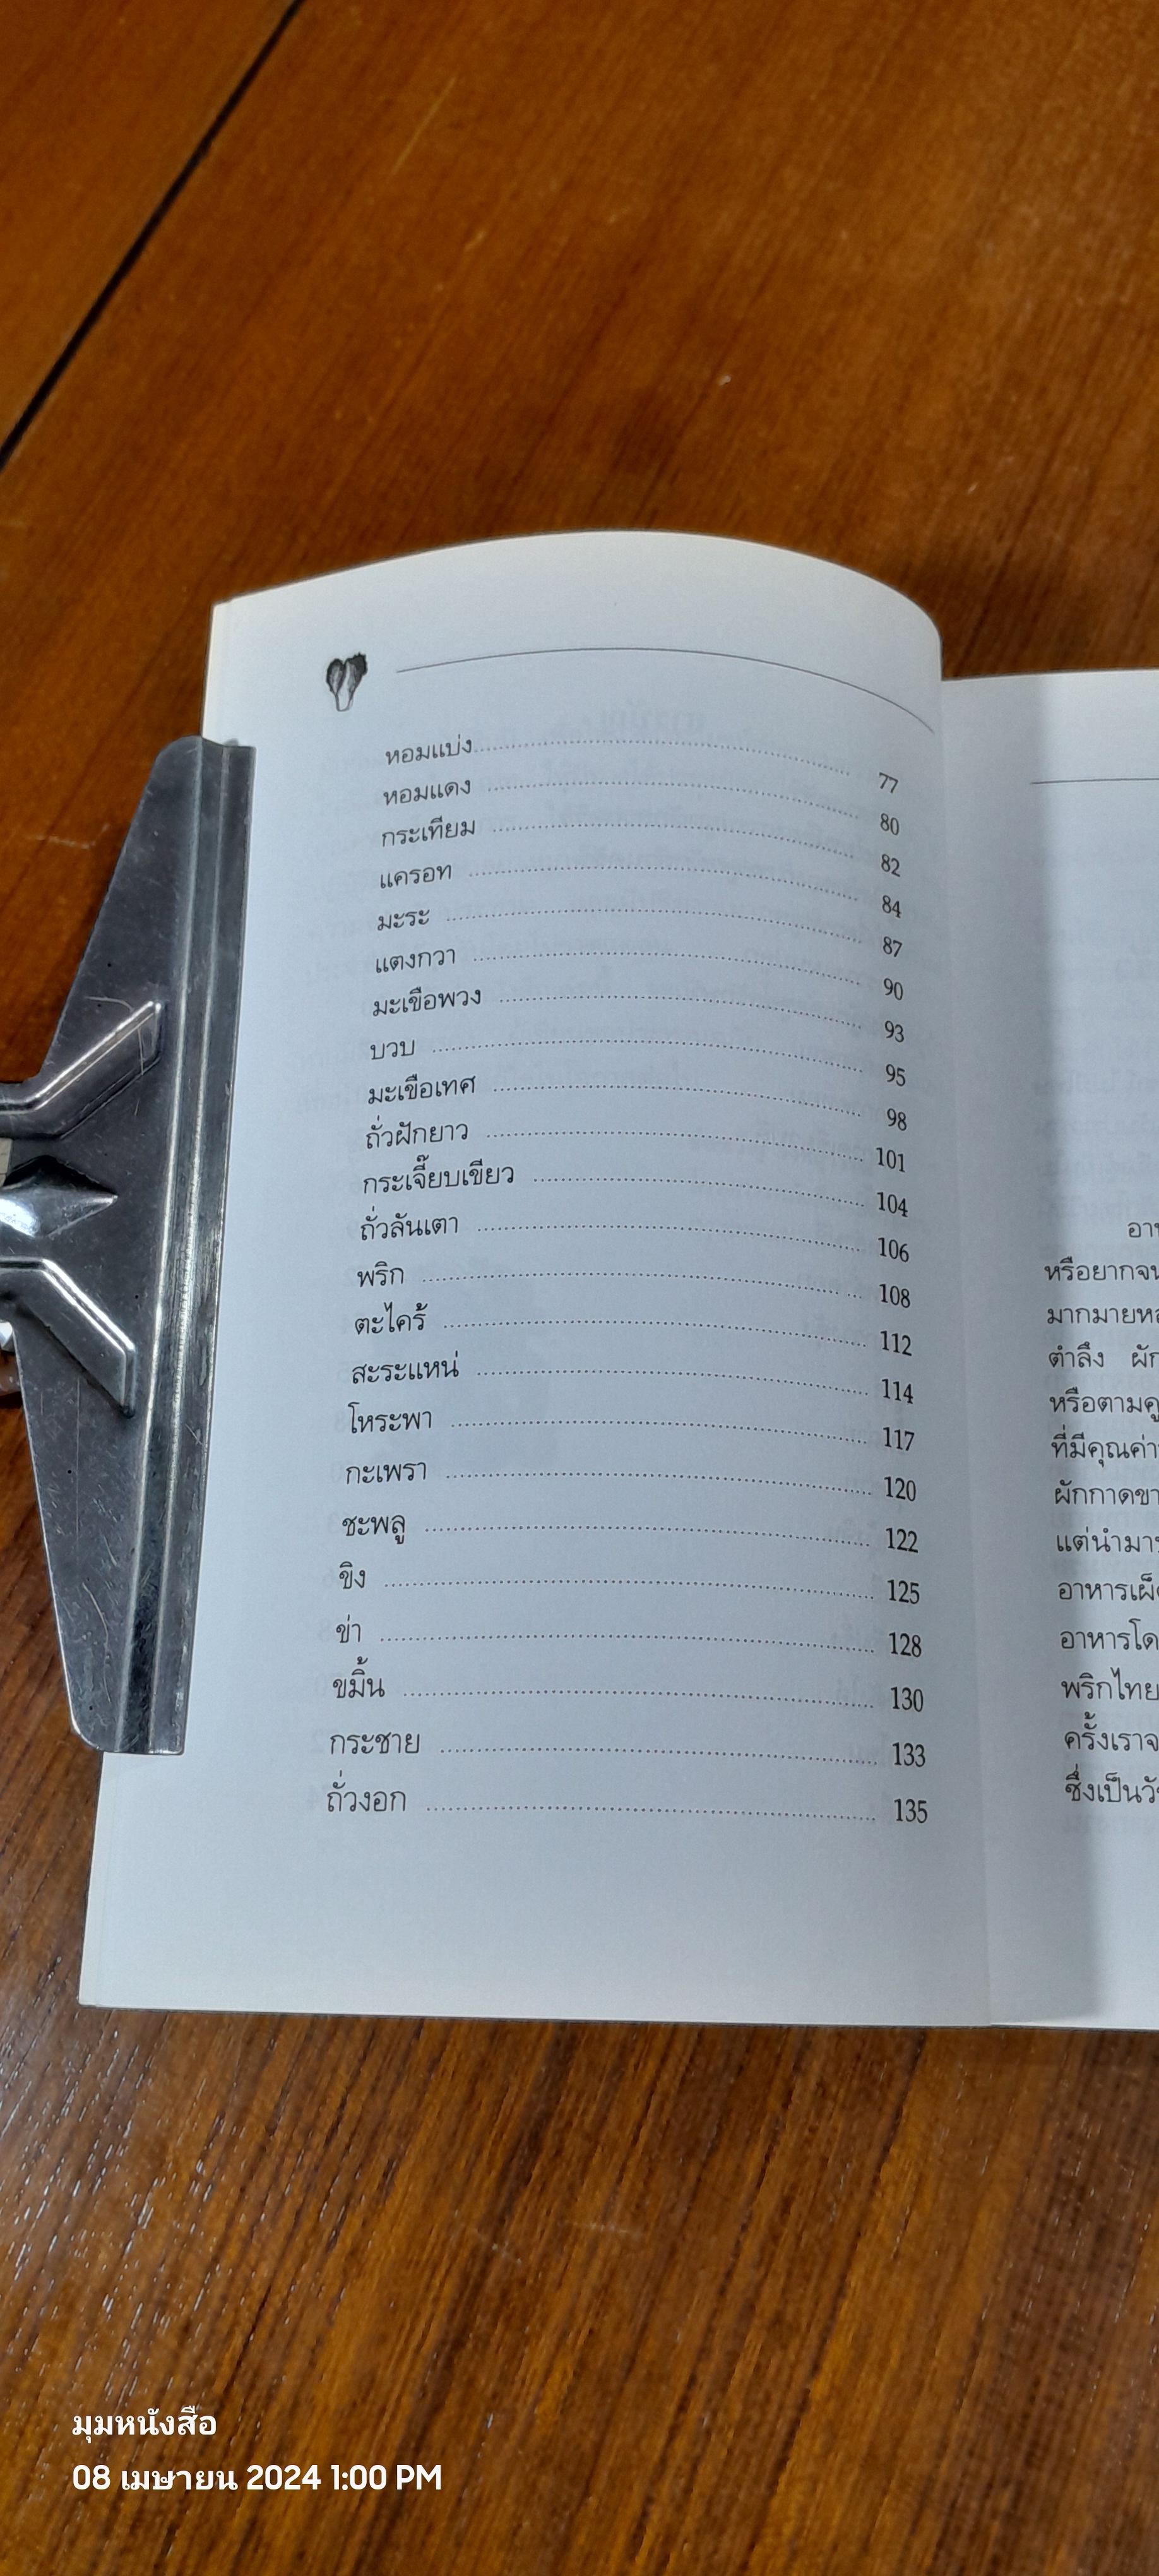 หอมแบ่ง 77
หอมแดง 80
กระเทียม 82
แครอท 84
มะระ 87
แตงกวา 90
มะเขือพวง 93
บวบ 95
มะเขือเทศ 98
ถั่วฝักยาว 101
กระเจี๊ยบเขียว 104
ถั่วลันเตา 106
พริก 108
ตะไคร้ 112
สะระแหน่ 114
โหระพา 117
กะเพรา 120
ชะพลู 122
ขิง 125
ข่า 128
ขมิ้น 130
กระชาย 133
ถั่วงอก 135
หรือยากจน
มากมาย
ตำลึง
หรือตาม
ที่มีคุณค่า
ผักกาด
แต่นำมา
อาหาร
อาหารโด
พริกไทย
ครั้งเรา
ซึ่งเป็น
มุมหนังสือ
08 เมษายน 2024 1:00 PM